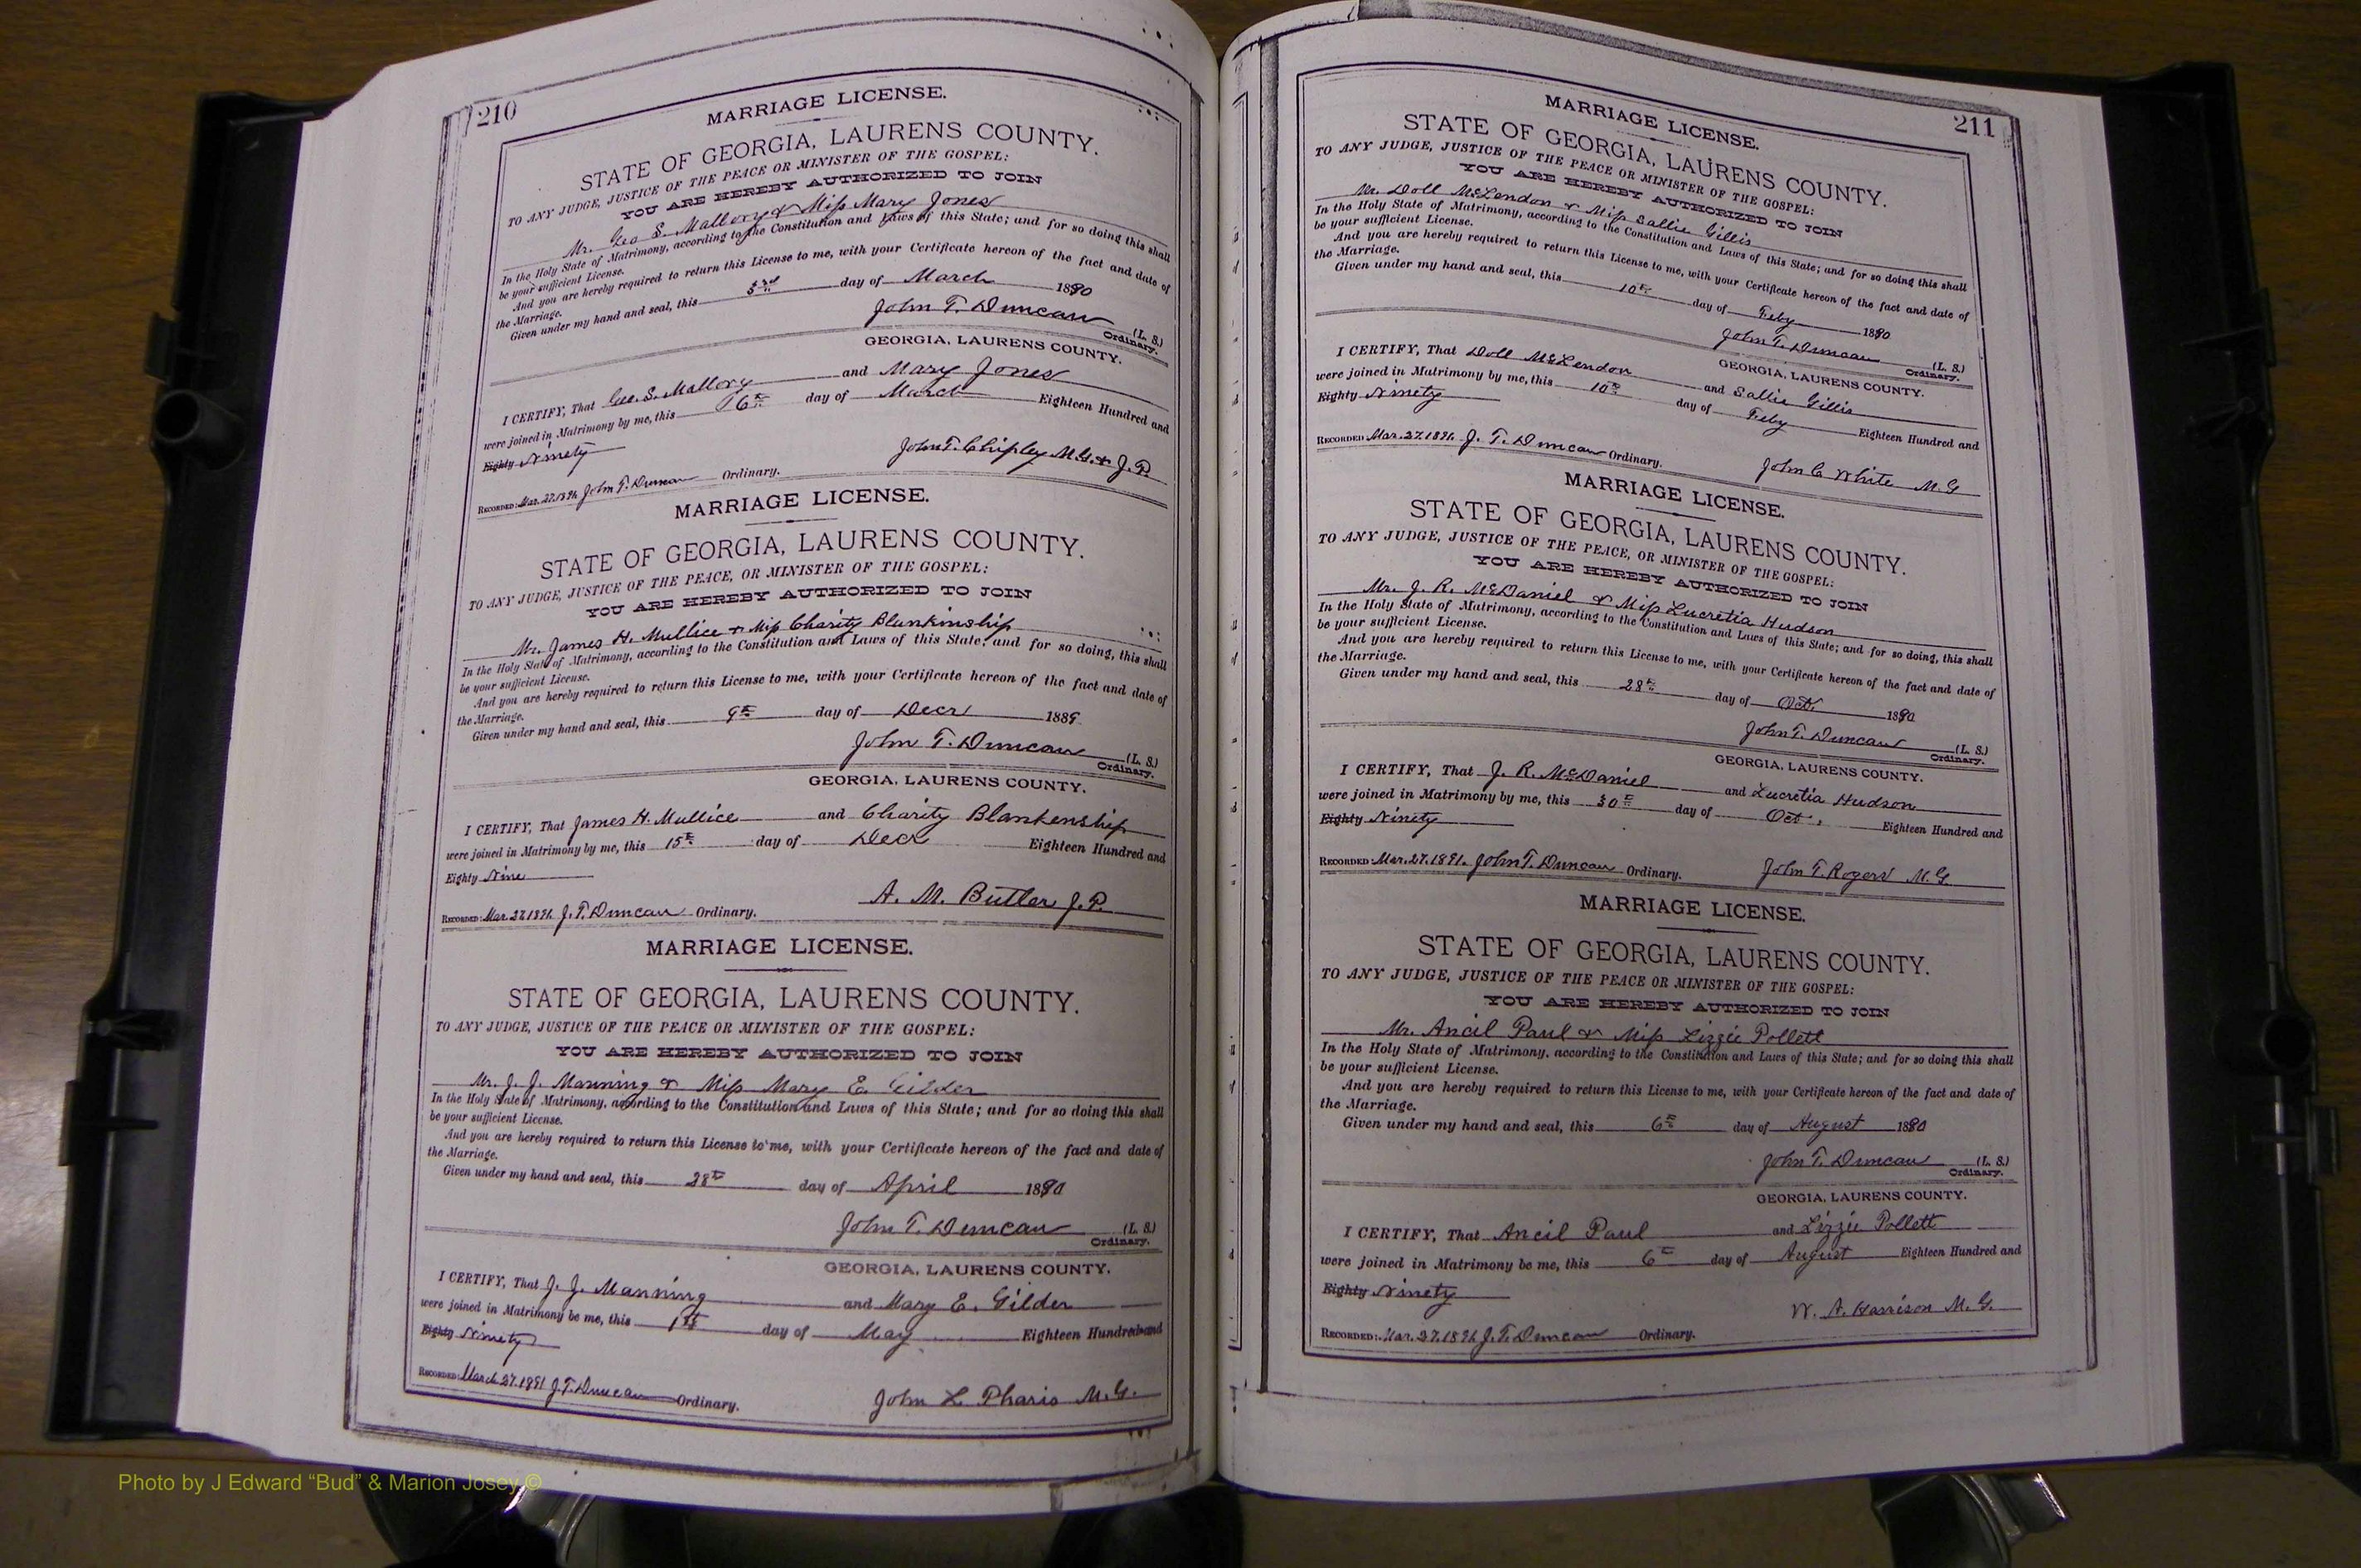 210
MARRIAGE LICENSE.
STATE OF GEORGIA, LAURENS COUNTY.
TO ANY JUDGE, JUSTICE OF THE PEACE OR MINISTER OF THE GOSPEL:
YOU ARE HEREBY AUTHORIZED TO JOIN
Mr. Geo S. Mallory & Miss Mary Jones
In the Holy State of Matrimony, according to the Constitution and Laws of this State; and for so doing this shall
be your sufficient License.
And you are hereby required to return this License to me, with your Certificate hereon of the fact and date of
the Marriage.
Given under my hand and seal, this day of March 1890
John T. Duncan (L. S.)
Ordinary.
GEORGIA, LAURENS COUNTY.
I CERTIFY, That Geo. S. Mallory and Mary Jones
were joined in Matrimony by me, this 16th day of March Eighteen Hundred and
Eighty Ninety
John T. Chipley M.G. & J.P.
RECORDED: Mar. 27. 1891. John T. Duncan Ordinary.
MARRIAGE LICENSE.
STATE OF GEORGIA, LAURENS COUNTY.
TO ANY JUDGE, JUSTICE OF THE PEACE, OR MINISTER OF THE GOSPEL:
YOU ARE HEREBY AUTHORIZED TO JOIN
Mr. James H. Mullice & Miss Charity Blankinship
In the Holy State of Matrimony, according to the Constitution and Laws of this State; and for so doing, this shall
be your sufficient License.
And you are hereby required to return this License to me, with your Certificate hereon of the fact and date of
the Marriage.
Given under my hand and seal, this 9th day of Decr 1889
John T. Duncan (L. S.)
Ordinary.
GEORGIA, LAURENS COUNTY.
I CERTIFY, That James H. Mullice and Charity Blankenship
were joined in Matrimony by me, this 15th day of Decr Eighteen Hundred and
Eighty Nine
A. M. Butler J.P.
RECORDED: Mar. 27. 1891. J. T. Duncan Ordinary.
MARRIAGE LICENSE.
STATE OF GEORGIA, LAURENS COUNTY.
TO ANY JUDGE, JUSTICE OF THE PEACE OR MINISTER OF THE GOSPEL:
YOU ARE HEREBY AUTHORIZED TO JOIN
Mr. J. J. Manning & Miss Mary E. Gilder
In the Holy State of Matrimony, according to the Constitution and Laws of this State; and for so doing this shall
be your sufficient License.
And you are hereby required to return this License to me, with your Certificate hereon of the fact and date of
the Marriage.
Given under my hand and seal, this 28th day of April 1890
John T. Duncan (L. S.)
Ordinary.
GEORGIA, LAURENS COUNTY.
I CERTIFY, That J. J. Manning and Mary E. Gilder
were joined in Matrimony be me, this 1st day of May Eighteen Hundred and
Eighty Ninety
RECORDED: March 27. 1891 J. T. Duncan Ordinary.
John L. Pharis M.G.
211
MARRIAGE LICENSE.
STATE OF GEORGIA, LAURENS COUNTY.
TO ANY JUDGE, JUSTICE OF THE PEACE OR MINISTER OF THE GOSPEL:
YOU ARE HEREBY AUTHORIZED TO JOIN
Mr. Doll McLendon & Miss Sallie Gillis
In the Holy State of Matrimony, according to the Constitution and Laws of this State; and for so doing this shall
be your sufficient License.
And you are hereby required to return this License to me, with your Certificate hereon of the fact and date of
the Marriage.
Given under my hand and seal, this 10th day of Feby 1890
John T. Duncan (L. S.)
Ordinary.
GEORGIA, LAURENS COUNTY.
I CERTIFY, That Doll McLendon and Sallie Gillis
were joined in Matrimony by me, this 10th day of Feby Eighteen Hundred and
Eighty Ninety
RECORDED: Mar. 27. 1891. J. T. Duncan Ordinary.
John C White M.G
MARRIAGE LICENSE.
STATE OF GEORGIA, LAURENS COUNTY.
TO ANY JUDGE, JUSTICE OF THE PEACE, OR MINISTER OF THE GOSPEL:
YOU ARE HEREBY AUTHORIZED TO JOIN
Mr. J. R. McDaniel & Miss Lucretia Hudson
In the Holy State of Matrimony, according to the Constitution and Laws of this State; and for so doing, this shall
be your sufficient License.
And you are hereby required to return this License to me, with your Certificate hereon of the fact and date of
the Marriage.
Given under my hand and seal, this 28th day of Oct. 1890
John T. Duncan (L. S.)
Ordinary.
GEORGIA, LAURENS COUNTY.
I CERTIFY, That J. R. McDaniel and Lucretia Hudson
were joined in Matrimony by me, this 30th day of Oct. Eighteen Hundred and
Eighty Ninety
RECORDED: Mar. 27. 1891. John T. Duncan Ordinary.
John T. Rogers M.G.
MARRIAGE LICENSE.
STATE OF GEORGIA, LAURENS COUNTY.
TO ANY JUDGE, JUSTICE OF THE PEACE OR MINISTER OF THE GOSPEL:
YOU ARE HEREBY AUTHORIZED TO JOIN
Mr. Ancil Paul & Miss Lizzie Pollett
In the Holy State of Matrimony, according to the Constitution and Laws of this State; and for so doing this shall
be your sufficient License.
And you are hereby required to return this License to me, with your Certificate hereon of the fact and date of
the Marriage.
Given under my hand and seal, this 6th day of August 1890
John T. Duncan (L. S.)
Ordinary.
GEORGIA, LAURENS COUNTY.
I CERTIFY, That Ancil Paul and Lizzie Pollett
were joined in Matrimony be me, this 6th day of August Eighteen Hundred and
Eighty Ninety
W. A. Harrison M.G.
RECORDED: Mar. 27. 1891. J. T. Duncan Ordinary.
Photo by J Edward “Bud” & Marion Josey ©